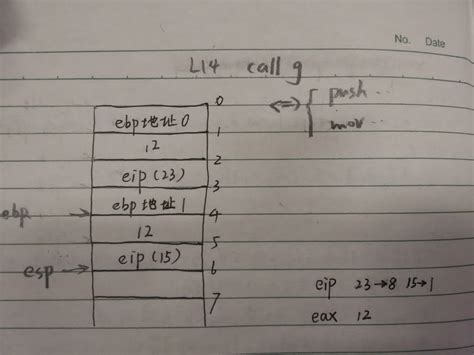 No. Date
L14 call g
0
ebp地址0
⟺ { push..
1
12
mov..
2
eip (23)
3
ebp地址1
ebp → 4
12
5
eip (15)
esp → 6
eip 23→8 15→1
7
eax 12